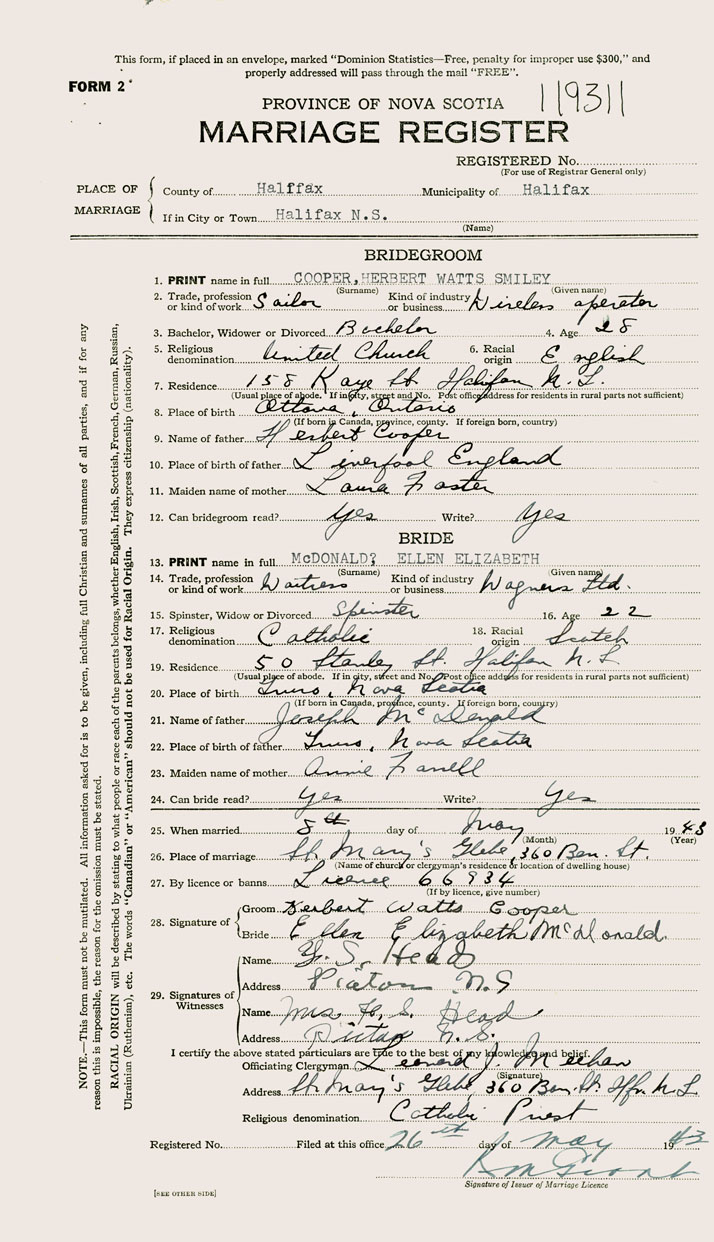 This form, if placed in an envelope, marked "Dominion Statistics—Free, penalty for improper use $300," and
properly addressed will pass through the mail "FREE".
FORM 2
119311
PROVINCE OF NOVA SCOTIA
MARRIAGE REGISTER
REGISTERED No.
(For use of Registrar General only)
PLACE OF MARRIAGE
County of Halffax Municipality of Halifax
If in City or Town Halifax N.S.
(Name)
BRIDEGROOM
1. PRINT name in full COOPER,HERBERT WATTS SMILEY
(Surname) (Given name)
2. Trade, profession or kind of work Sailor Kind of industry or business Wireless operator
3. Bachelor, Widower or Divorced Bachelor 4. Age 28
5. Religious denomination United Church 6. Racial origin English
7. Residence 158 Kaye St. Halifax N.S.
(Usual place of abode. If in city, street and No. Post office address for residents in rural parts not sufficient)
8. Place of birth Ottawa, Ontario
(If born in Canada, province, county. If foreign born, country)
9. Name of father Herbert Cooper
10. Place of birth of father Liverpool England
11. Maiden name of mother Laura Foster
12. Can bridegroom read? Yes Write? Yes
BRIDE
13. PRINT name in full McDONALD? ELLEN ELIZABETH
(Surname) (Given name)
14. Trade, profession or kind of work Waitress Kind of industry or business Wagners Ltd.
15. Spinster, Widow or Divorced Spinster 16. Age 22
17. Religious denomination Catholic 18. Racial origin Scotch
19. Residence 50 Stanley St. Halifax N.S
(Usual place of abode. If in city, street and No. Post office address for residents in rural parts not sufficient)
20. Place of birth Truro, Nova Scotia
(If born in Canada, province, county. If foreign born, country)
21. Name of father Joseph McDonald
22. Place of birth of father Truro, Nova Scotia
23. Maiden name of mother Annie Farrell
24. Can bride read? Yes Write? Yes
25. When married 8th day of May 1943
(Month) (Year)
26. Place of marriage St. Mary's Glebe, 360 Barr. St.
(Name of church or clergyman's residence or location of dwelling house)
27. By licence or banns Licence 66934
(If by licence, give number)
28. Signature of
Groom Herbert Watts Cooper
Bride Ellen Elizabeth McDonald.
29. Signatures of Witnesses
Name S. Head
Address Pictou N.S
Name Mrs H. S. Head
Address Pictou N.S.
I certify the above stated particulars are true to the best of my knowledge and belief.
Officiating Clergyman Leonard J. Meehan
(Signature)
Address St. Mary's Glebe, 360 Barr. St. Hfx. N.S.
Religious denomination Catholic Priest
Registered No. Filed at this office 26th day of May 1943
Signature of Issuer of Marriage Licence
[SEE OTHER SIDE]
NOTE.—This form must not be mutilated. All information asked for is to be given, including full Christian and surnames of all parties, and if for any
reason this is impossible, the reason for the omission must be stated.
RACIAL ORIGIN will be described by stating to what people or race each of the parents belongs, whether English, Irish, Scottish, French, German, Russian,
Ukrainian (Ruthenian), etc. The words "Canadian" or "American" should not be used for Racial Origin. They express citizenship (nationality).